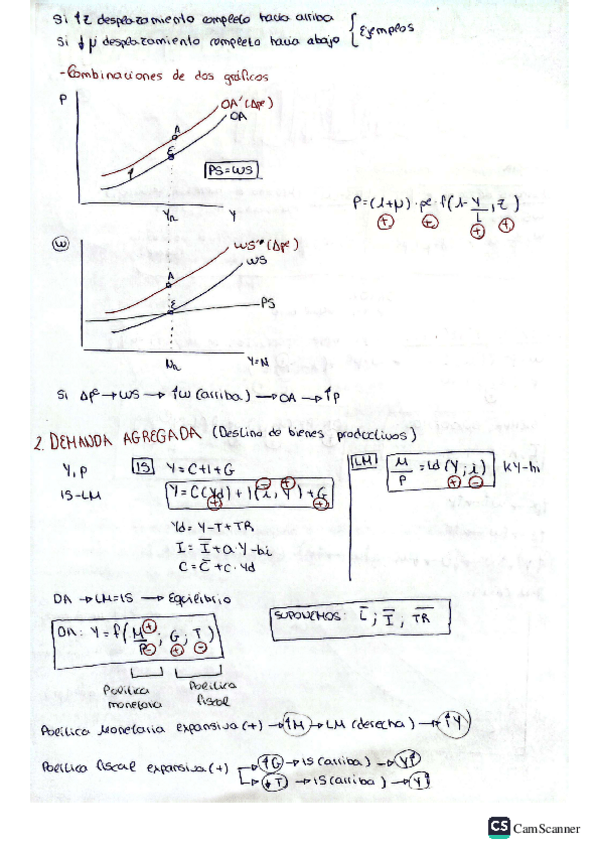 Si ↑z desplazamiento completo hacia arriba
Si ↓μ desplazamiento completo hacia abajo { Ejemplos
- Combinaciones de dos gráficos
P
OA' (Δpe)
OA
A
E
PS=WS
Yn
Y
P=(1+μ)·pe·f(1-Y/L, z)
(+) (+) (+) (+)
W
WS'' (Δpe)
WS
A
E
PS
Nn
Y=N
Si Δpe → WS → ↑w (arriba) → OA → ↑P
2. DEMANDA AGREGADA (Destino de bienes productivos)
Y, P
IS-LM
IS Y=C+I+G
Y=C(Yd)+I(i,Y)+G
(+) (-) (+) (+)
Yd= Y-T+TR
I= I̅+a·Y-bi
C= C̅+c·Yd
LM
M/P = Ld (Y; i) KY-hi
(+) (-)
DA → LM=IS → Equilibrio
DA: Y=f(M/P; G; T)
(+) (-) (+) (-)
Política monetaria
Política fiscal
SUPONEMOS: C̅; I̅, T̅R̅
Política Monetaria expansiva (+) → ↑M → LM (derecha) → ↑Y
Política fiscal expansiva (+) → ↑G → IS (arriba) → Y↑
→ ↓T → IS (arriba) → Y↑
CS CamScanner